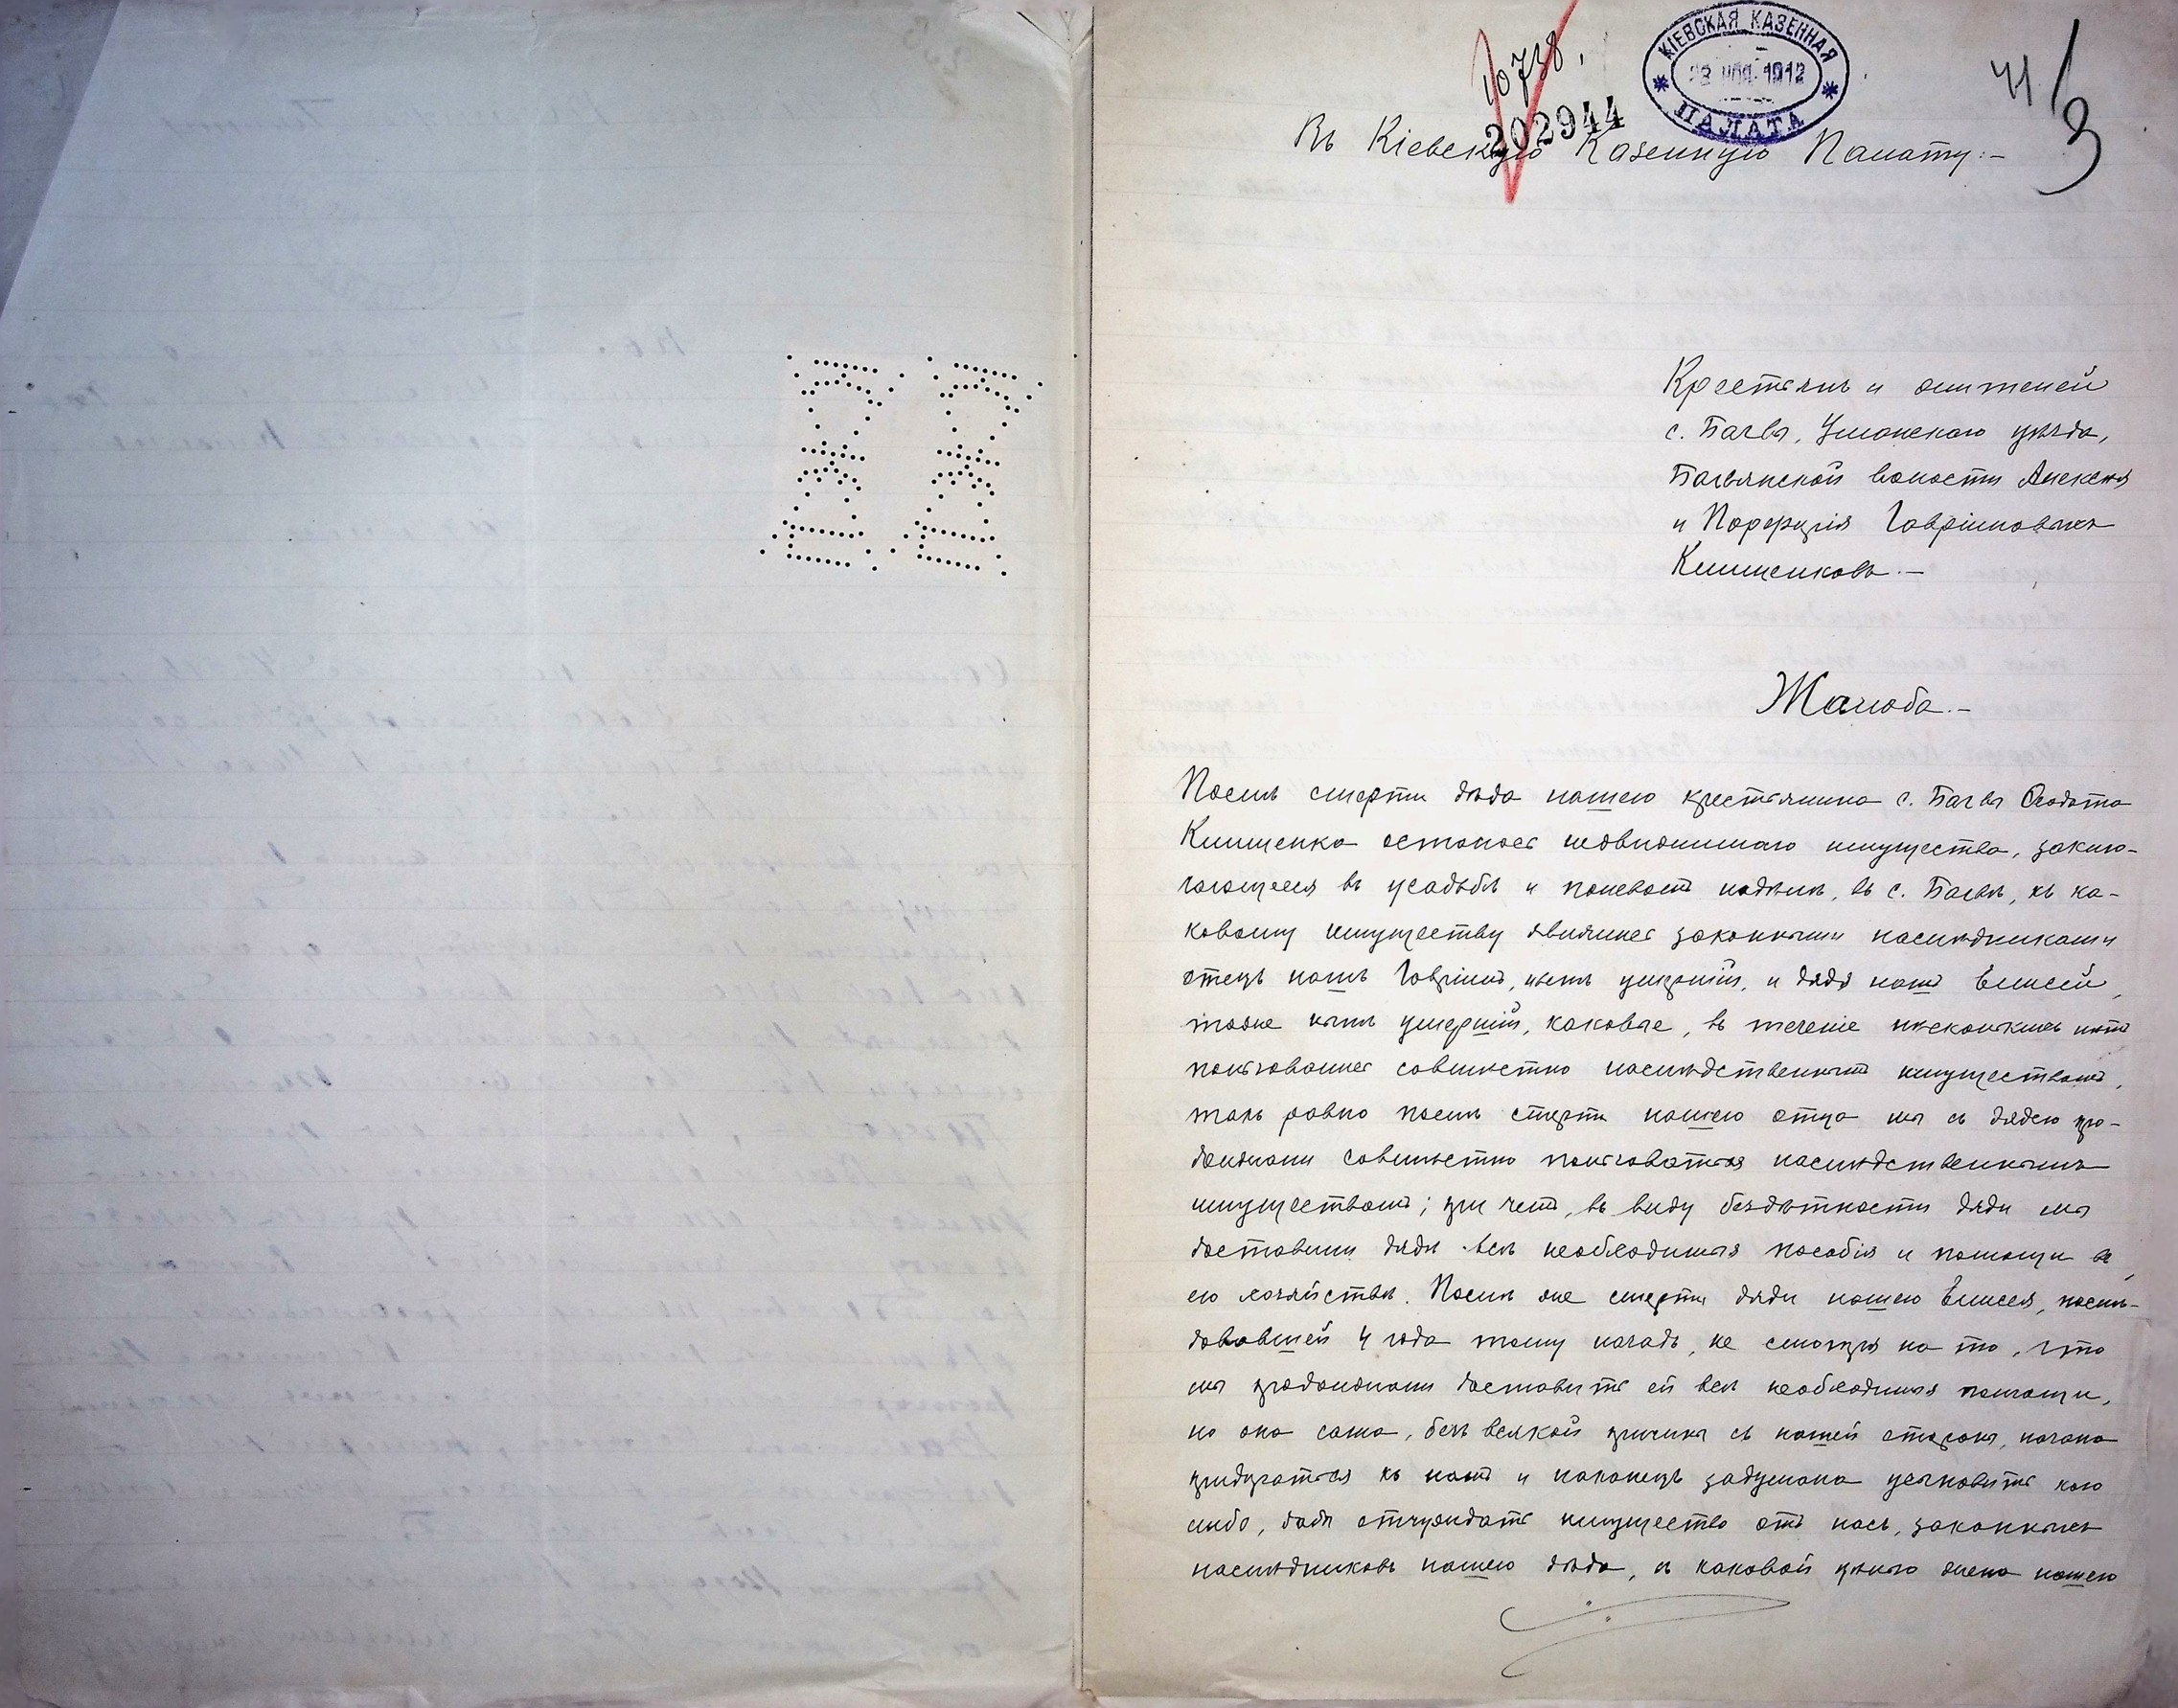 10738.
202944
КІЕВСКАЯ КАЗЕННАЯ
28 НОЯ. 1912
ПАЛАТА
41/3
Въ Кіевскую Казенную Палату:-
Крестьянъ и жителей
с. Багвы, Уманскаго уѣзда,
Багвянской волости Алексѣя
и Порфирія Гавріиловыхъ
Клименковъ.-
Жалоба.-
Послѣ смерти дѣда нашего крестьянина с. Багвы Ѳеодота
Клименка осталось недвижимаго имущества, заклю-
чающееся въ усадьбѣ и полевомъ надѣлѣ, въ с. Багвѣ, къ ка-
ковому имуществу явились законными наслѣдниками
отецъ нашъ Гавріилъ, нынѣ умершій, и дядя нашъ Елисей,
также нынѣ умершій, каковые, въ теченіе нѣсколькихъ лѣтъ
пользовались совмѣстно наслѣдственнымъ имуществомъ,
такъ равно послѣ смерти нашего отца мы съ дядею про-
должали совмѣстно пользоваться наслѣдственнымъ
имуществомъ; при чемъ, въ виду бездѣтности дяди мы
доставили дядѣ всѣ необходимыя пособія и помощи въ
его хозяйствѣ. Послѣ же смерти дяди нашего Елисея, послѣ-
довавшей 4 года тому назадъ, не смотря на то, что
мы продолжали доставить ей всѣ необходимыя помощи,
но она сама, безъ всякой причины съ нашей стороны, начала
придираться къ намъ и наконецъ задумала усыновить кого
либо, дабы отчуждать имущество отъ насъ, законныхъ
наслѣдниковъ нашего дѣда, съ каковой цѣлью жена нашего